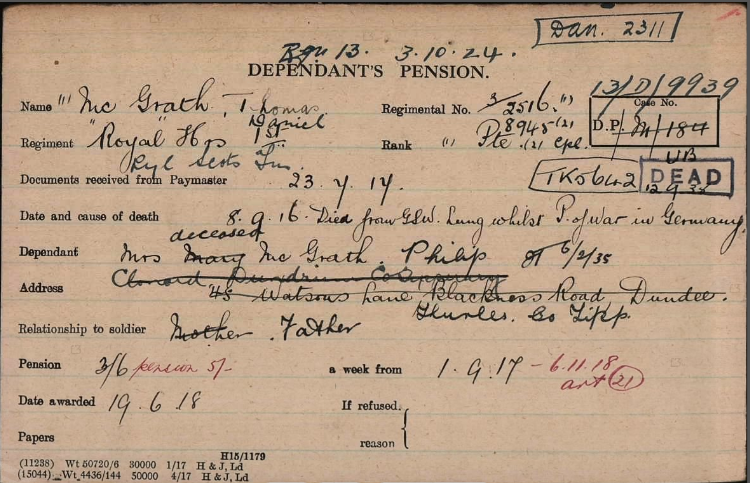 Dan. 2311
Rgn 13. 3.10.24.
DEPENDANT'S PENSION.
13/D/9939
Name (1) Mc Grath, Thomas Daniel
Regimental No. 3/2516 (1) 8945 (2)
Case No.
D.P. M/184
Regiment "Royal" Hrs 1st
Ryl Scots Fus.
Rank (1) Pte (2) Cpl.
UB
Documents received from Paymaster 23.7.17.
TK5642
DEAD
12 9 35
Date and cause of death 8.9.16. Died from G.S.W. Lung whilst P. of War in Germany.
deceased
Dependant Mrs Mary Mc Grath. Philip 6/2/35
Clonard Dundrum Co Tipperary
Address 45 Watsons Lane Blackness Road, Dundee.
Thurles. Co Tipp.
Relationship to soldier Mother. Father
Pension 3/6 pension 5/- a week from 1.9.17 – 6.11.18
art (21)
Date awarded 19.6.18 If refused,
Papers reason
H15/1179
(11238) Wt 50720/6 30000 1/17 H & J, Ld
(15044) Wt 4436/144 50000 4/17 H & J, Ld